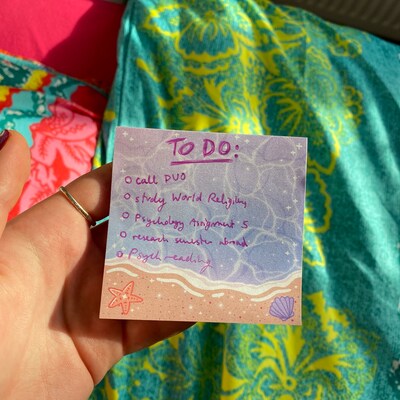 TO DO:
call DUO
study World Religions
Psychology Assignment 5
research semester abroad
Psych reading